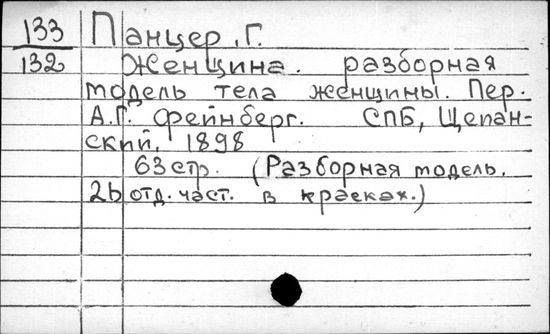 133 Панцер, Г.
132 Женщина. разборная
модель тела женщины. Пер.
А.Г. Фейнберг. СПБ, Щепан-
ский, 1898
63 стр. (Разборная модель.
26 отд. част. в красках.)